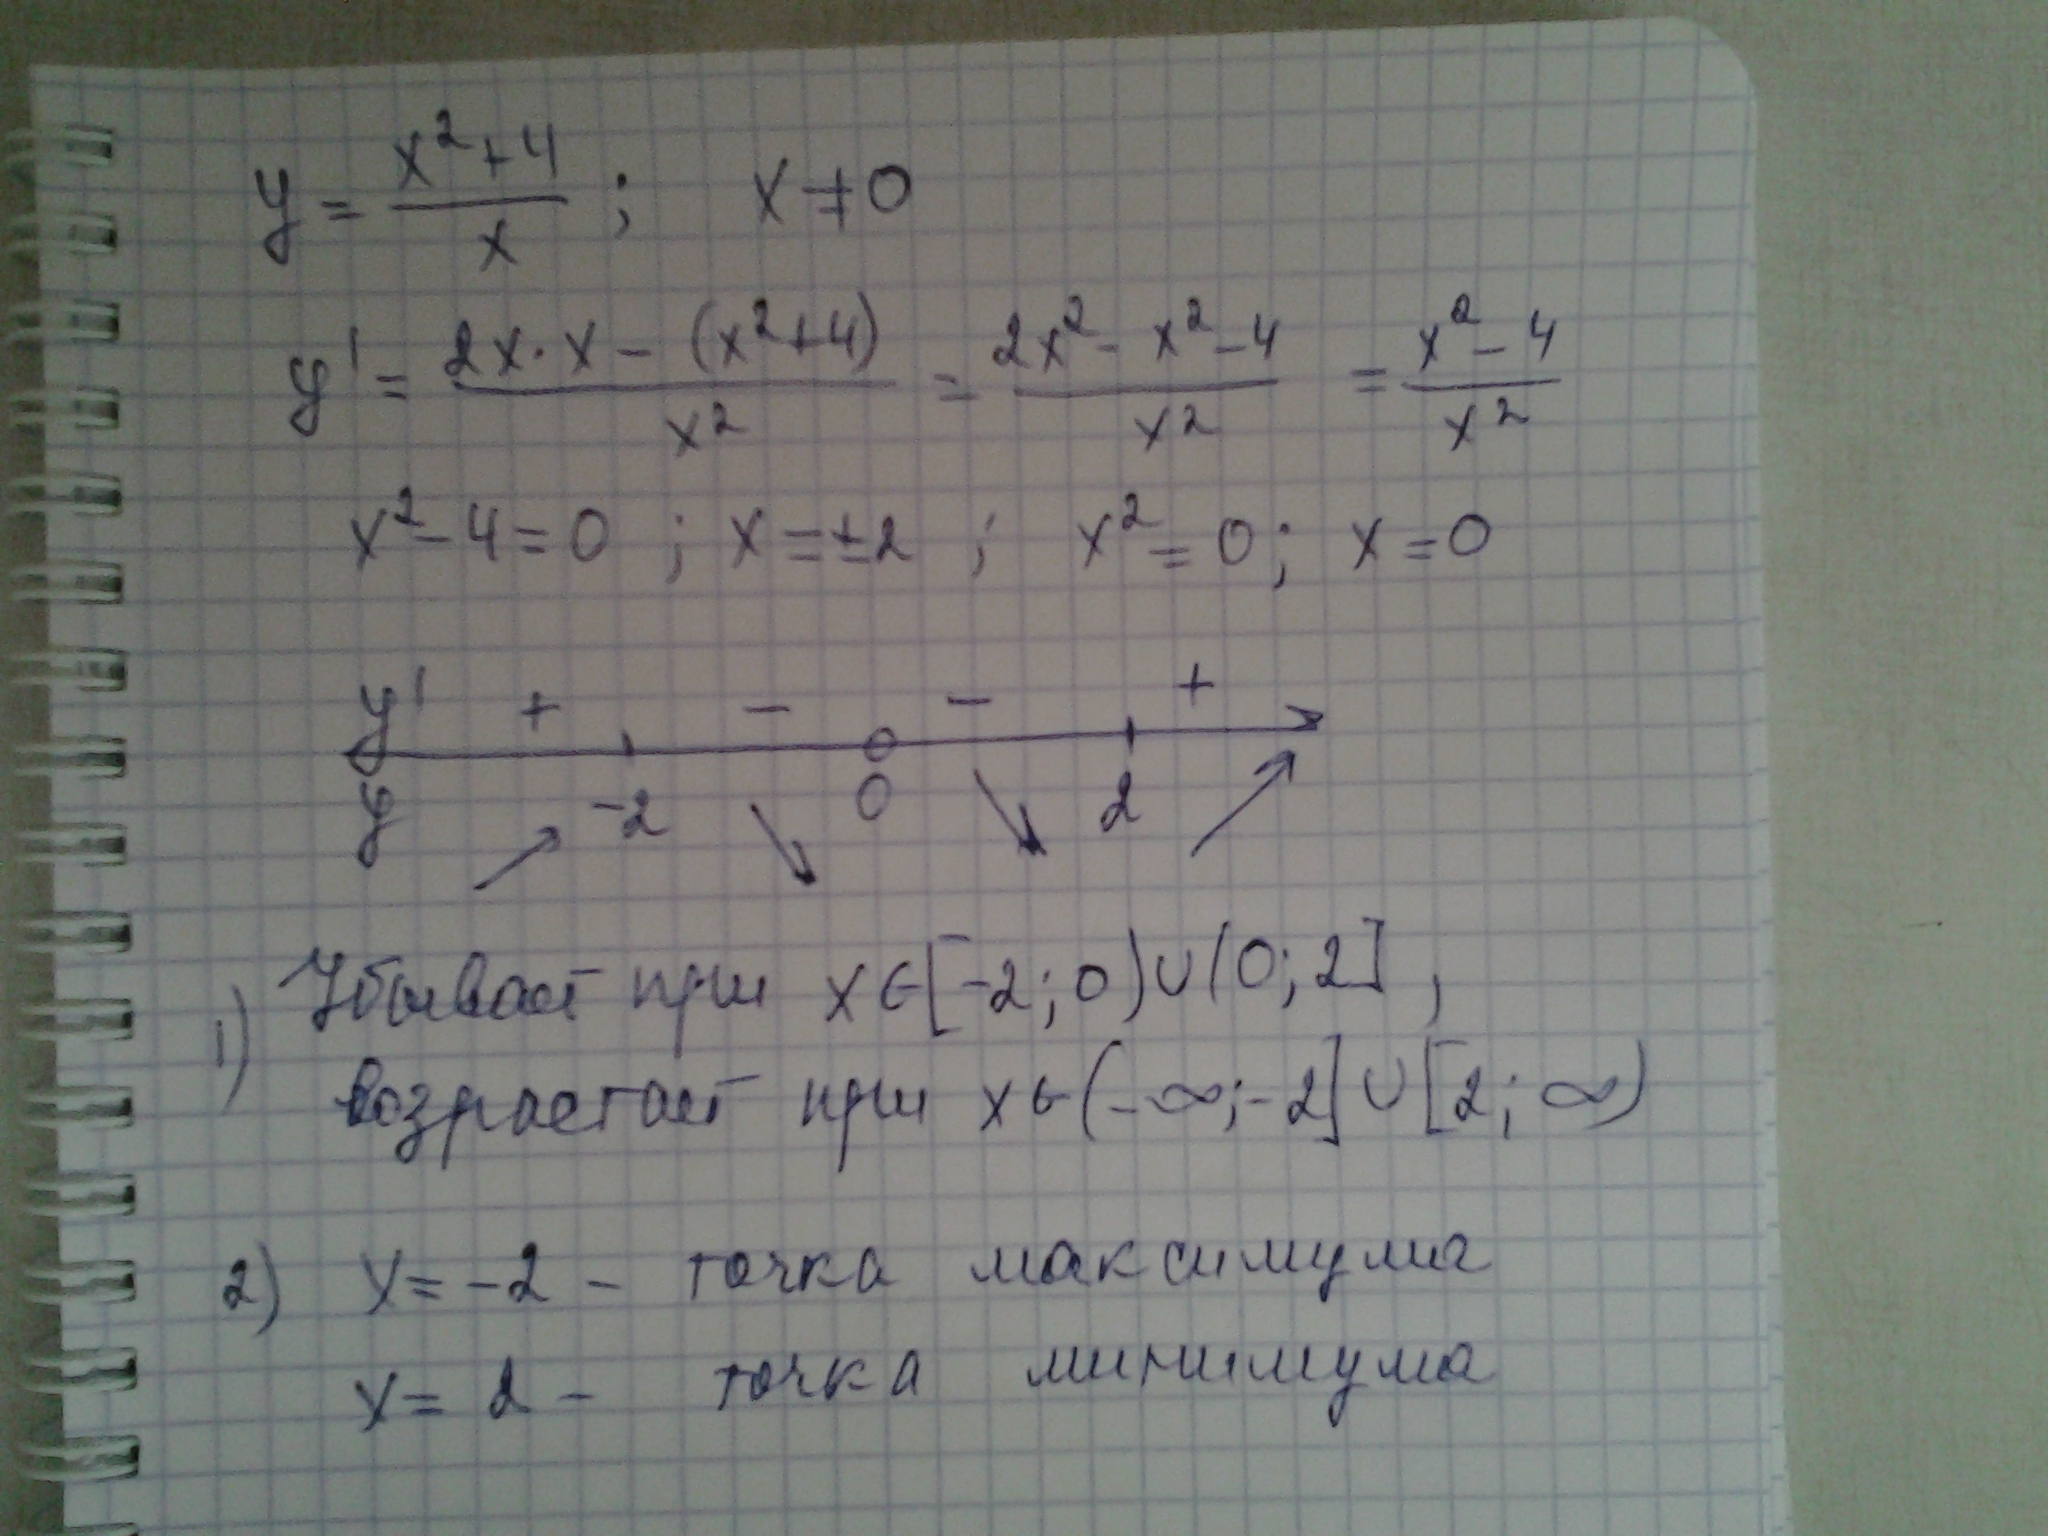 y = (x²+4)/x ; x ≠ 0
y' = (2x·x − (x²+4))/x² = (2x² − x² − 4)/x² = (x² − 4)/x²
x² − 4 = 0 ; x = ±2 ; x² = 0; x = 0
y' + − − +
y -2 0 2
1) Убывает при x∈[-2; 0)∪(0; 2] ,
возрастает при x∈(-∞; -2]∪[2; ∞)
2) x = -2 − точка максимума
x = 2 − точка минимума